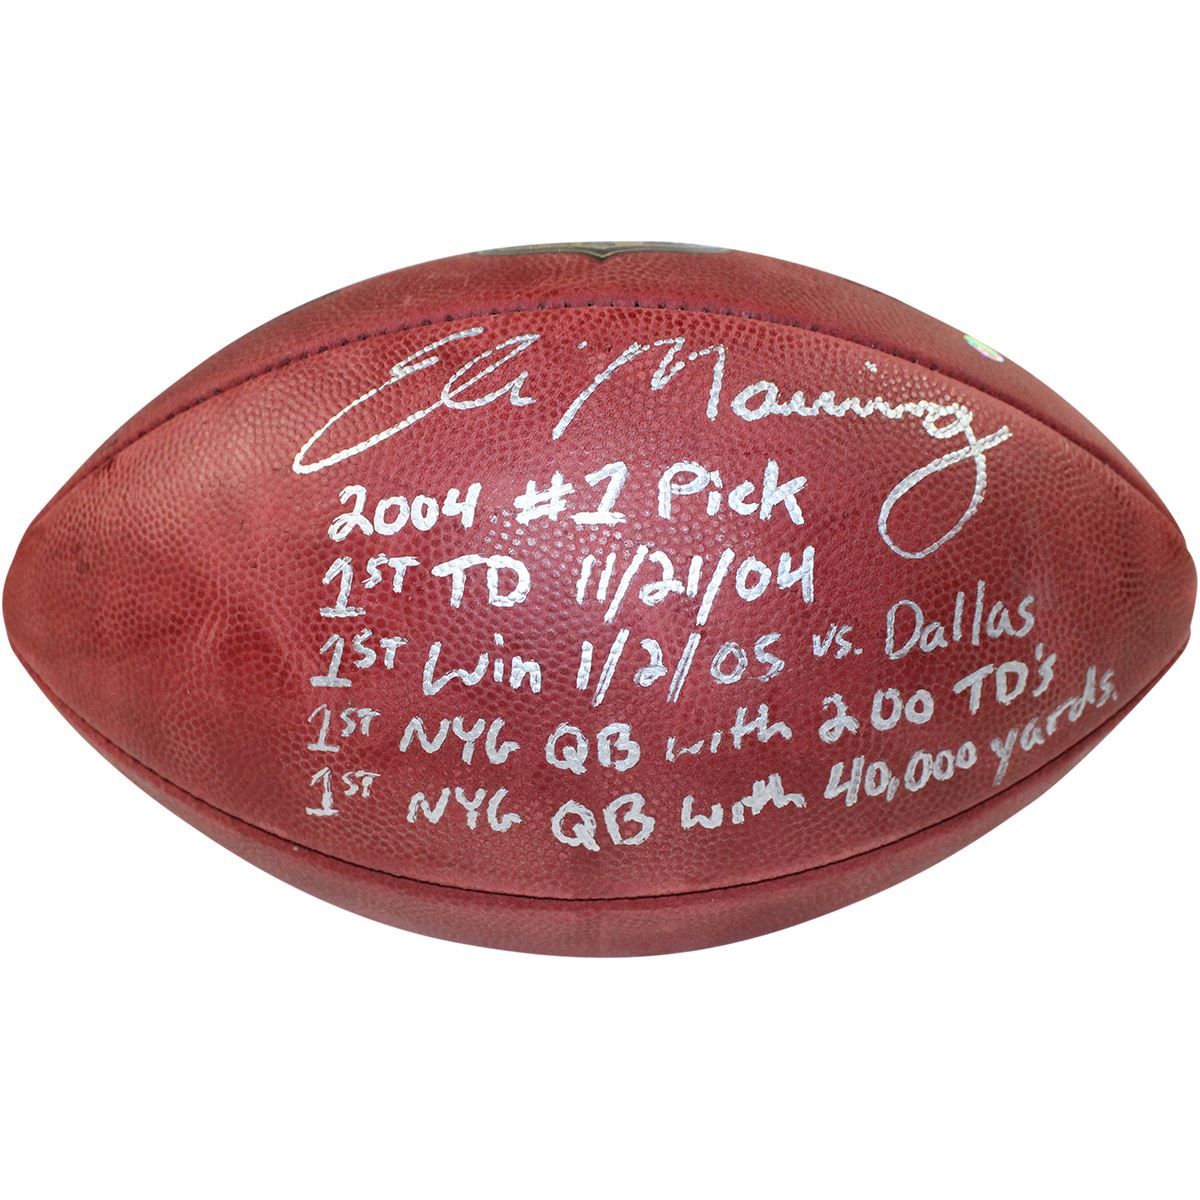 Eli Manning
2004 #1 Pick
1ST TD 11/21/04
1ST Win 1/2/05 vs. Dallas
1ST NYG QB with 200 TD's
1ST NYG QB with 40,000 yards.